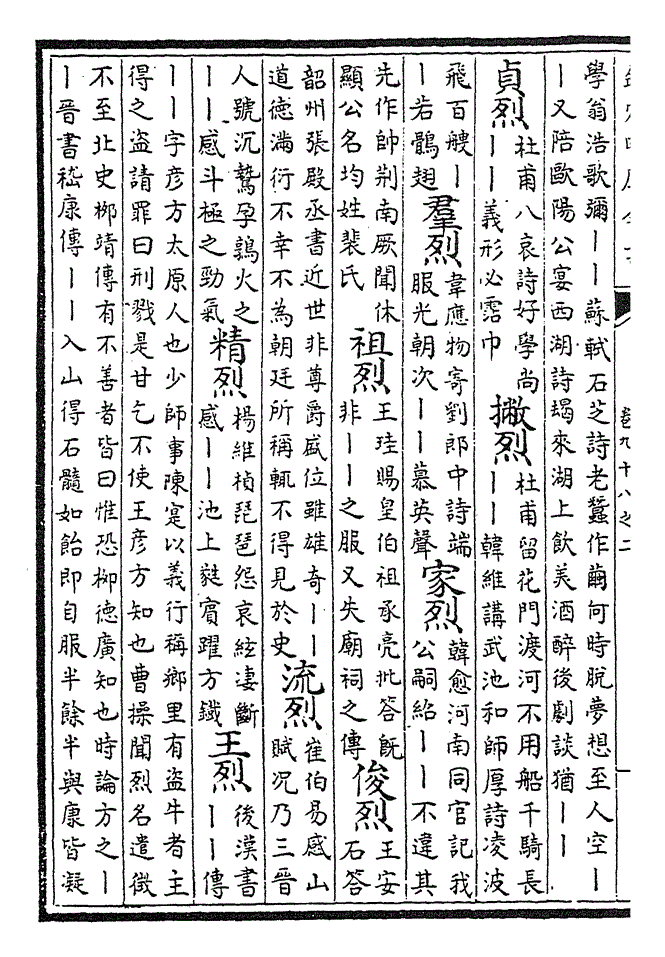 卷九十八之二
學翁浩歌彌丨丨蘇軾石芝詩老蠶作繭何時脫夢想至人空丨
丨又陪歐陽公宴西湖詩朅來湖上飲美酒醉後劇談猶丨丨
貞烈
杜甫八哀詩好學尚
丨丨義形必霑巾
撇烈
杜甫留花門渡河不用船千騎長
丨丨韓維講武池和師厚詩凌波
飛百艘丨
丨若鶻翅
羣烈
韋應物寄劉郎中詩端
服光朝次丨丨慕英聲
家烈
韓愈河南同官記我
公嗣紹丨丨不違其
先作帥荆南厥聞休
顯公名均姓裴氏
祖烈
王珪賜皇伯祖承亮批答旣
非丨丨之服又失廟祠之傳
俊烈
王安
石答
韶州張殿丞書近世非尊爵盛位雖雄奇丨丨
道德滿衍不幸不為朝廷所稱輒不得見於史
流烈
崔伯易感山
賦况乃三晉
人號沉鷙孕鶉火之
丨丨感斗極之勁氣
精烈
楊維楨琵琶怨哀絃凄斷
感丨丨池上蕤賓躍方鐵
王烈
後漢書
丨丨傳
丨丨字彥方太原人也少師事陳寔以義行稱鄉里有盜牛者主
得之盜請罪曰刑戮是甘乞不使王彥方知也曹操聞烈名遣徵
不至北史柳靖傳有不善者皆曰惟恐柳德廣知也時論方之丨
丨晉書嵇康傳丨丨入山得石髓如飴即自服半餘半與康皆凝